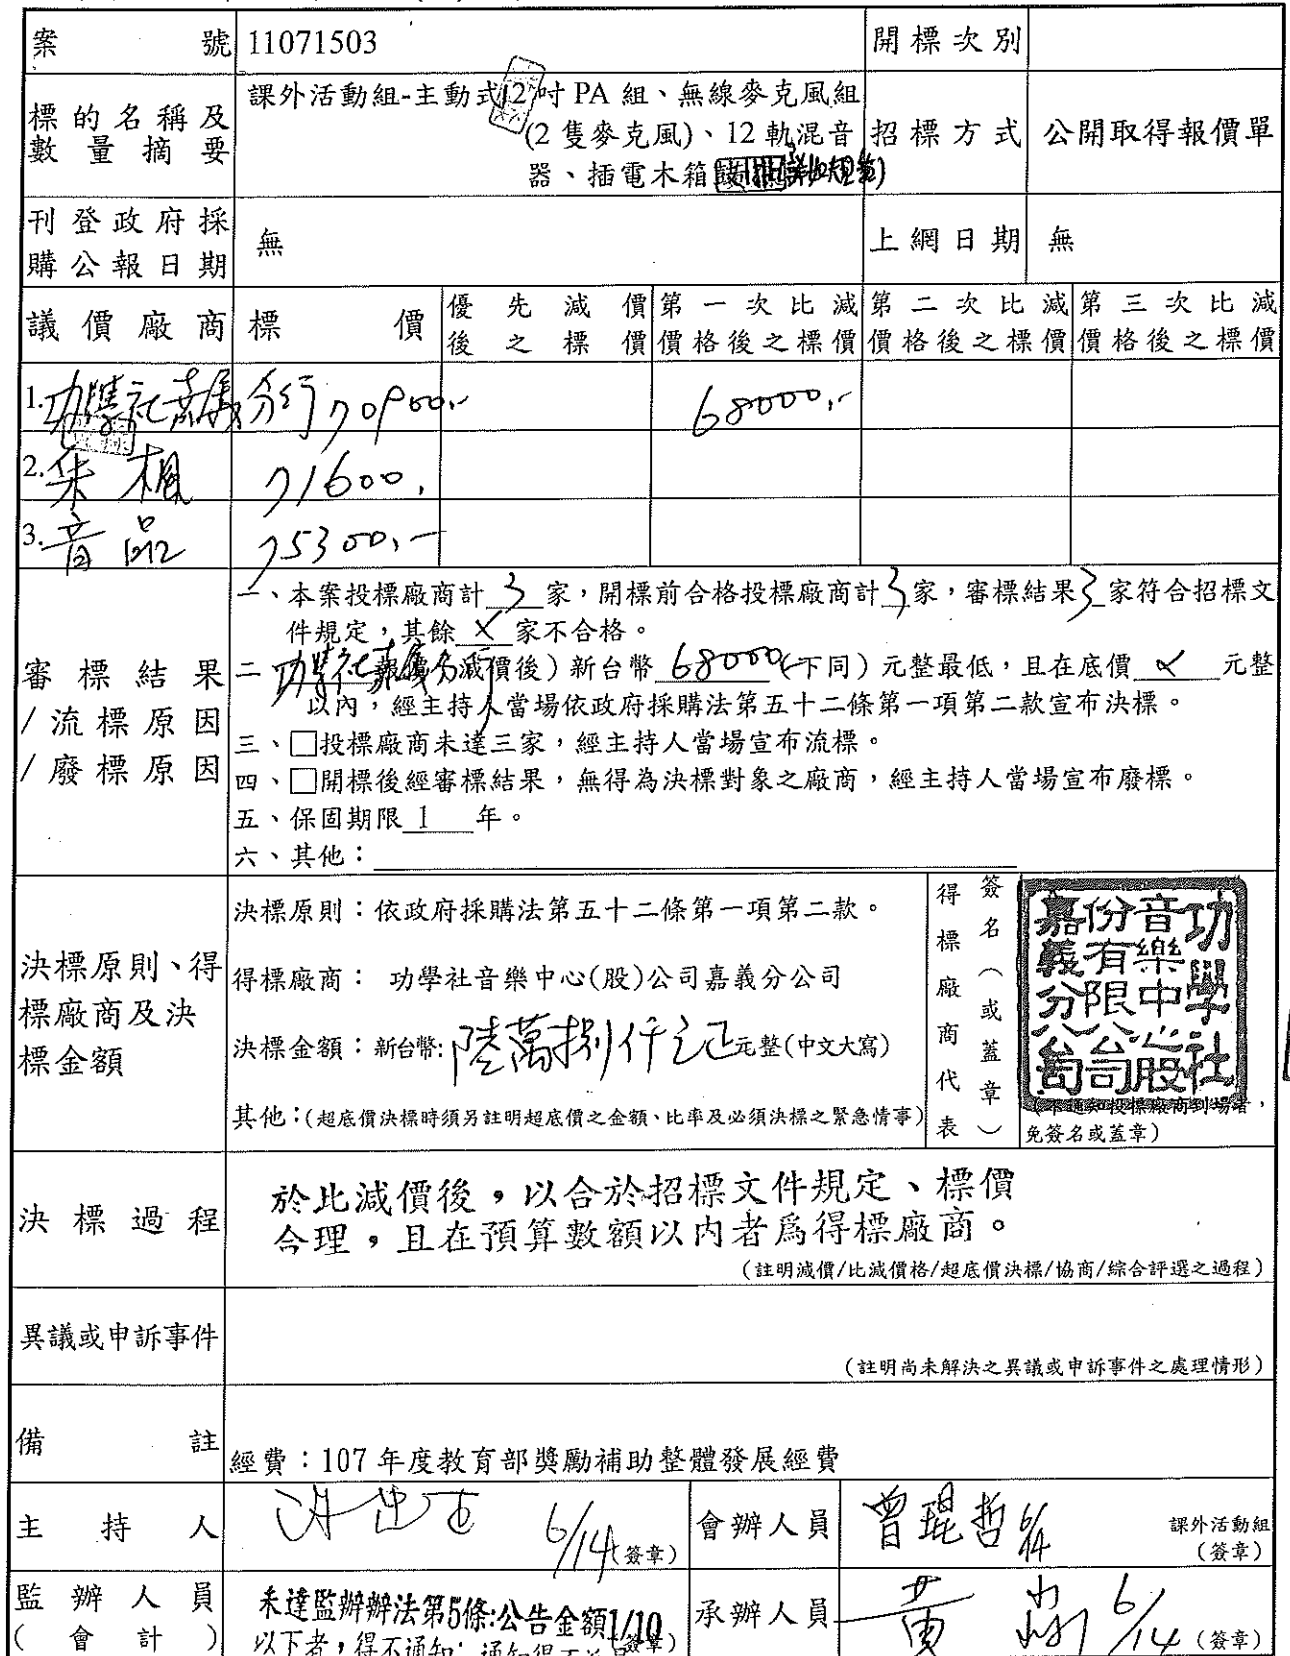 案號 11071503 開標次別
標的名稱及數量摘要 課外活動組-主動式12吋 PA 組、無線麥克風組
(2 隻麥克風)、12 軌混音
器、插電木箱
招標方式 公開取得報價單
刊登政府採購公報日期 無 上網日期 無
議價廠商 標價 優先減價後之標價 第一次比減價格後之標價 第二次比減價格後之標價 第三次比減價格後之標價
1.功學社嘉義分行 70900,- 68000,-
2.朱楓 71600,
3.音品 75300,-
審標結果/流標原因/廢標原因
一、本案投標廠商計 3 家，開標前合格投標廠商計 3 家，審標結果 3 家符合招標文
件規定，其餘 X 家不合格。
二 功學社嘉義分行 減價後）新台幣 68000 (下同）元整最低，且在底價 X 元整
以內，經主持人當場依政府採購法第五十二條第一項第二款宣布決標。
三、□投標廠商未達三家，經主持人當場宣布流標。
四、□開標後經審標結果，無得為決標對象之廠商，經主持人當場宣布廢標。
五、保固期限 1 年。
六、其他：
決標原則、得標廠商及決標金額
決標原則：依政府採購法第五十二條第一項第二款。
得標廠商： 功學社音樂中心(股)公司嘉義分公司
決標金額：新台幣:陸萬捌仟元正元整(中文大寫)
其他：(超底價決標時須另註明超底價之金額、比率及必須決標之緊急情事)
得標廠商代表
簽名（或蓋章）
功學社
音樂中心股
份有限公司
嘉義分公司
(不通知投標廠商到場者，
免簽名或蓋章)
決標過程
於比減價後，以合於招標文件規定、標價
合理，且在預算數額以內者爲得標廠商。
(註明減價/比減價格/超底價決標/協商/綜合評選之過程)
異議或申訴事件
(註明尚未解決之異議或申訴事件之處理情形)
備註 經費：107 年度教育部獎勵補助整體發展經費
主持人 6/14 (簽章) 會辦人員 曾琨哲 6/14 課外活動組
(簽章)
監辦人員
(會計)
未達監辦辦法第5條:公告金額1/10
以下者，得不通知 (簽章)
承辦人員 黃 6/14 (簽章)